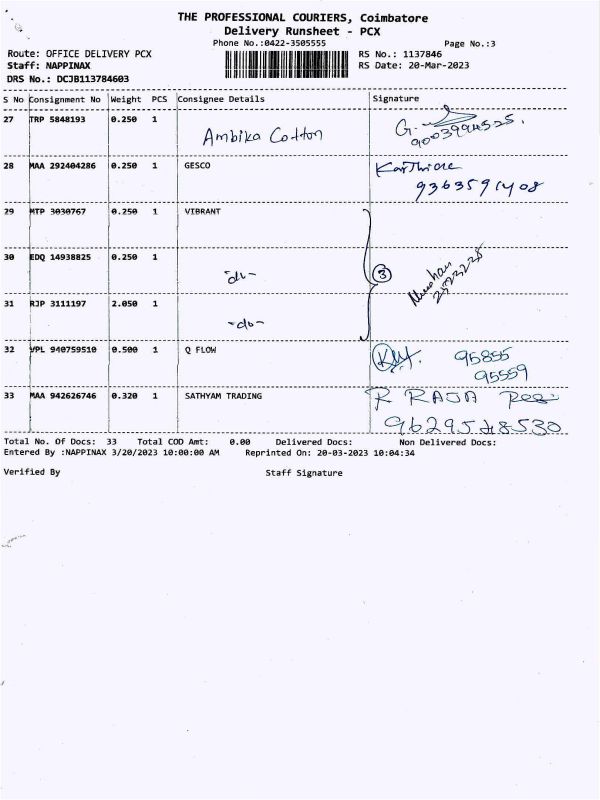 THE PROFESSIONAL COURIERS, Coimbatore
Delivery Runsheet - PCX
Phone No.:0422-3505555
Page No.:3
Route: OFFICE DELIVERY PCX
RS No.: 1137846
Staff: NAPPINAX
RS Date: 20-Mar-2023
DRS No.: DCJB113784603
S No Consignment No Weight PCS Consignee Details Signature
27 TRP 5848193 0.250 1 Ambika Cotton G.
9003994525.
28 MAA 292404286 0.250 1 GESCO
9363591408
29 MTP 3030767 0.250 1 VIBRANT
30 EDQ 14938825 0.250 1 -do- 3
31 RJP 3111197 2.050 1 -do-
32 VPL 940759510 0.500 1 Q FLOW 95855
95559
33 MAA 942626746 0.320 1 SATHYAM TRADING R RAJA
9629548530
Total No. Of Docs: 33 Total COD Amt: 0.00 Delivered Docs: Non Delivered Docs:
Entered By :NAPPINAX 3/20/2023 10:00:00 AM Reprinted On: 20-03-2023 10:04:34
Verified By Staff Signature